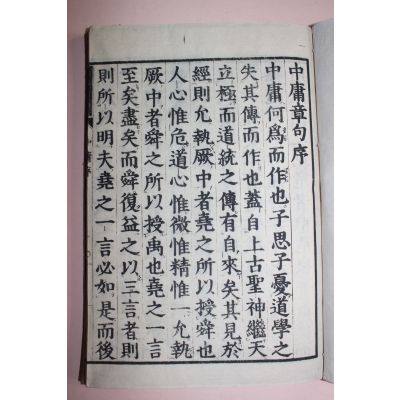 中庸章句序
中庸何爲而作也子思子憂道學之
失其傳而作也蓋自上古聖神繼天
立極而道統之傳有自來矣其見於
經則允執厥中者堯之所以授舜也
人心惟危道心惟微惟精惟一允執
厥中者舜之所以授禹也堯之一言
至矣盡矣而舜復益之以三言者則
則所以明夫堯之一言必如是而後